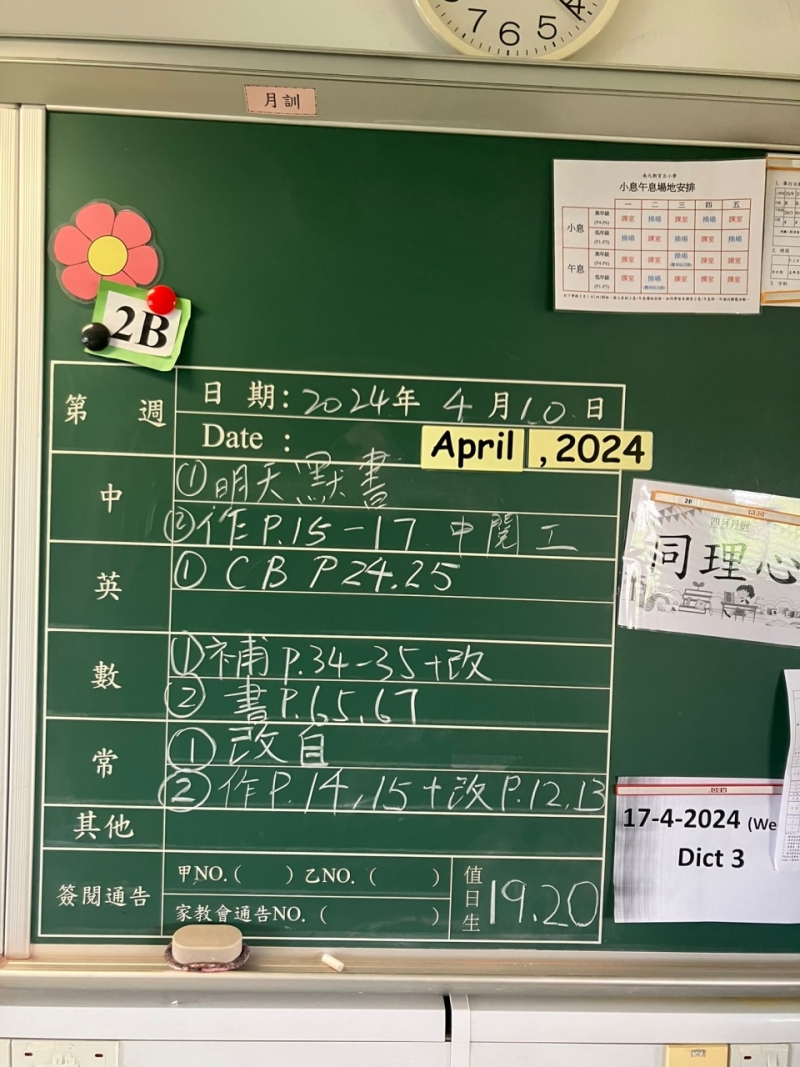 7 6 5 4
月訓
小息午息場地安排
一 二 三 四 五
小息 高年級 (P.4-P.6) 課室 操場 課室 操場 課室
低年級 (P.1-P.3) 操場 課室 操場 課室 操場
午息 高年級 (P.4-P.6) 課室 課室 操場 課室 課室
低年級 (P.1-P.3) 課室 操場 課室 課室 課室
2B
第 週
日 期: 2024年 4月10日
Date :
April , 2024
中
①明天默書
②作P.15-17 中閱工
英
① CB P24.25
數
①補P.34-35+改
② 書P.65,67
常
① 改自
② 作P.14,15+改P.12,13
其他
簽閱通告
甲NO.( ) 乙NO. ( )
家教會通告NO. ( )
值日生
19.20
四月月訓
同理心
17-4-2024 (We
Dict 3